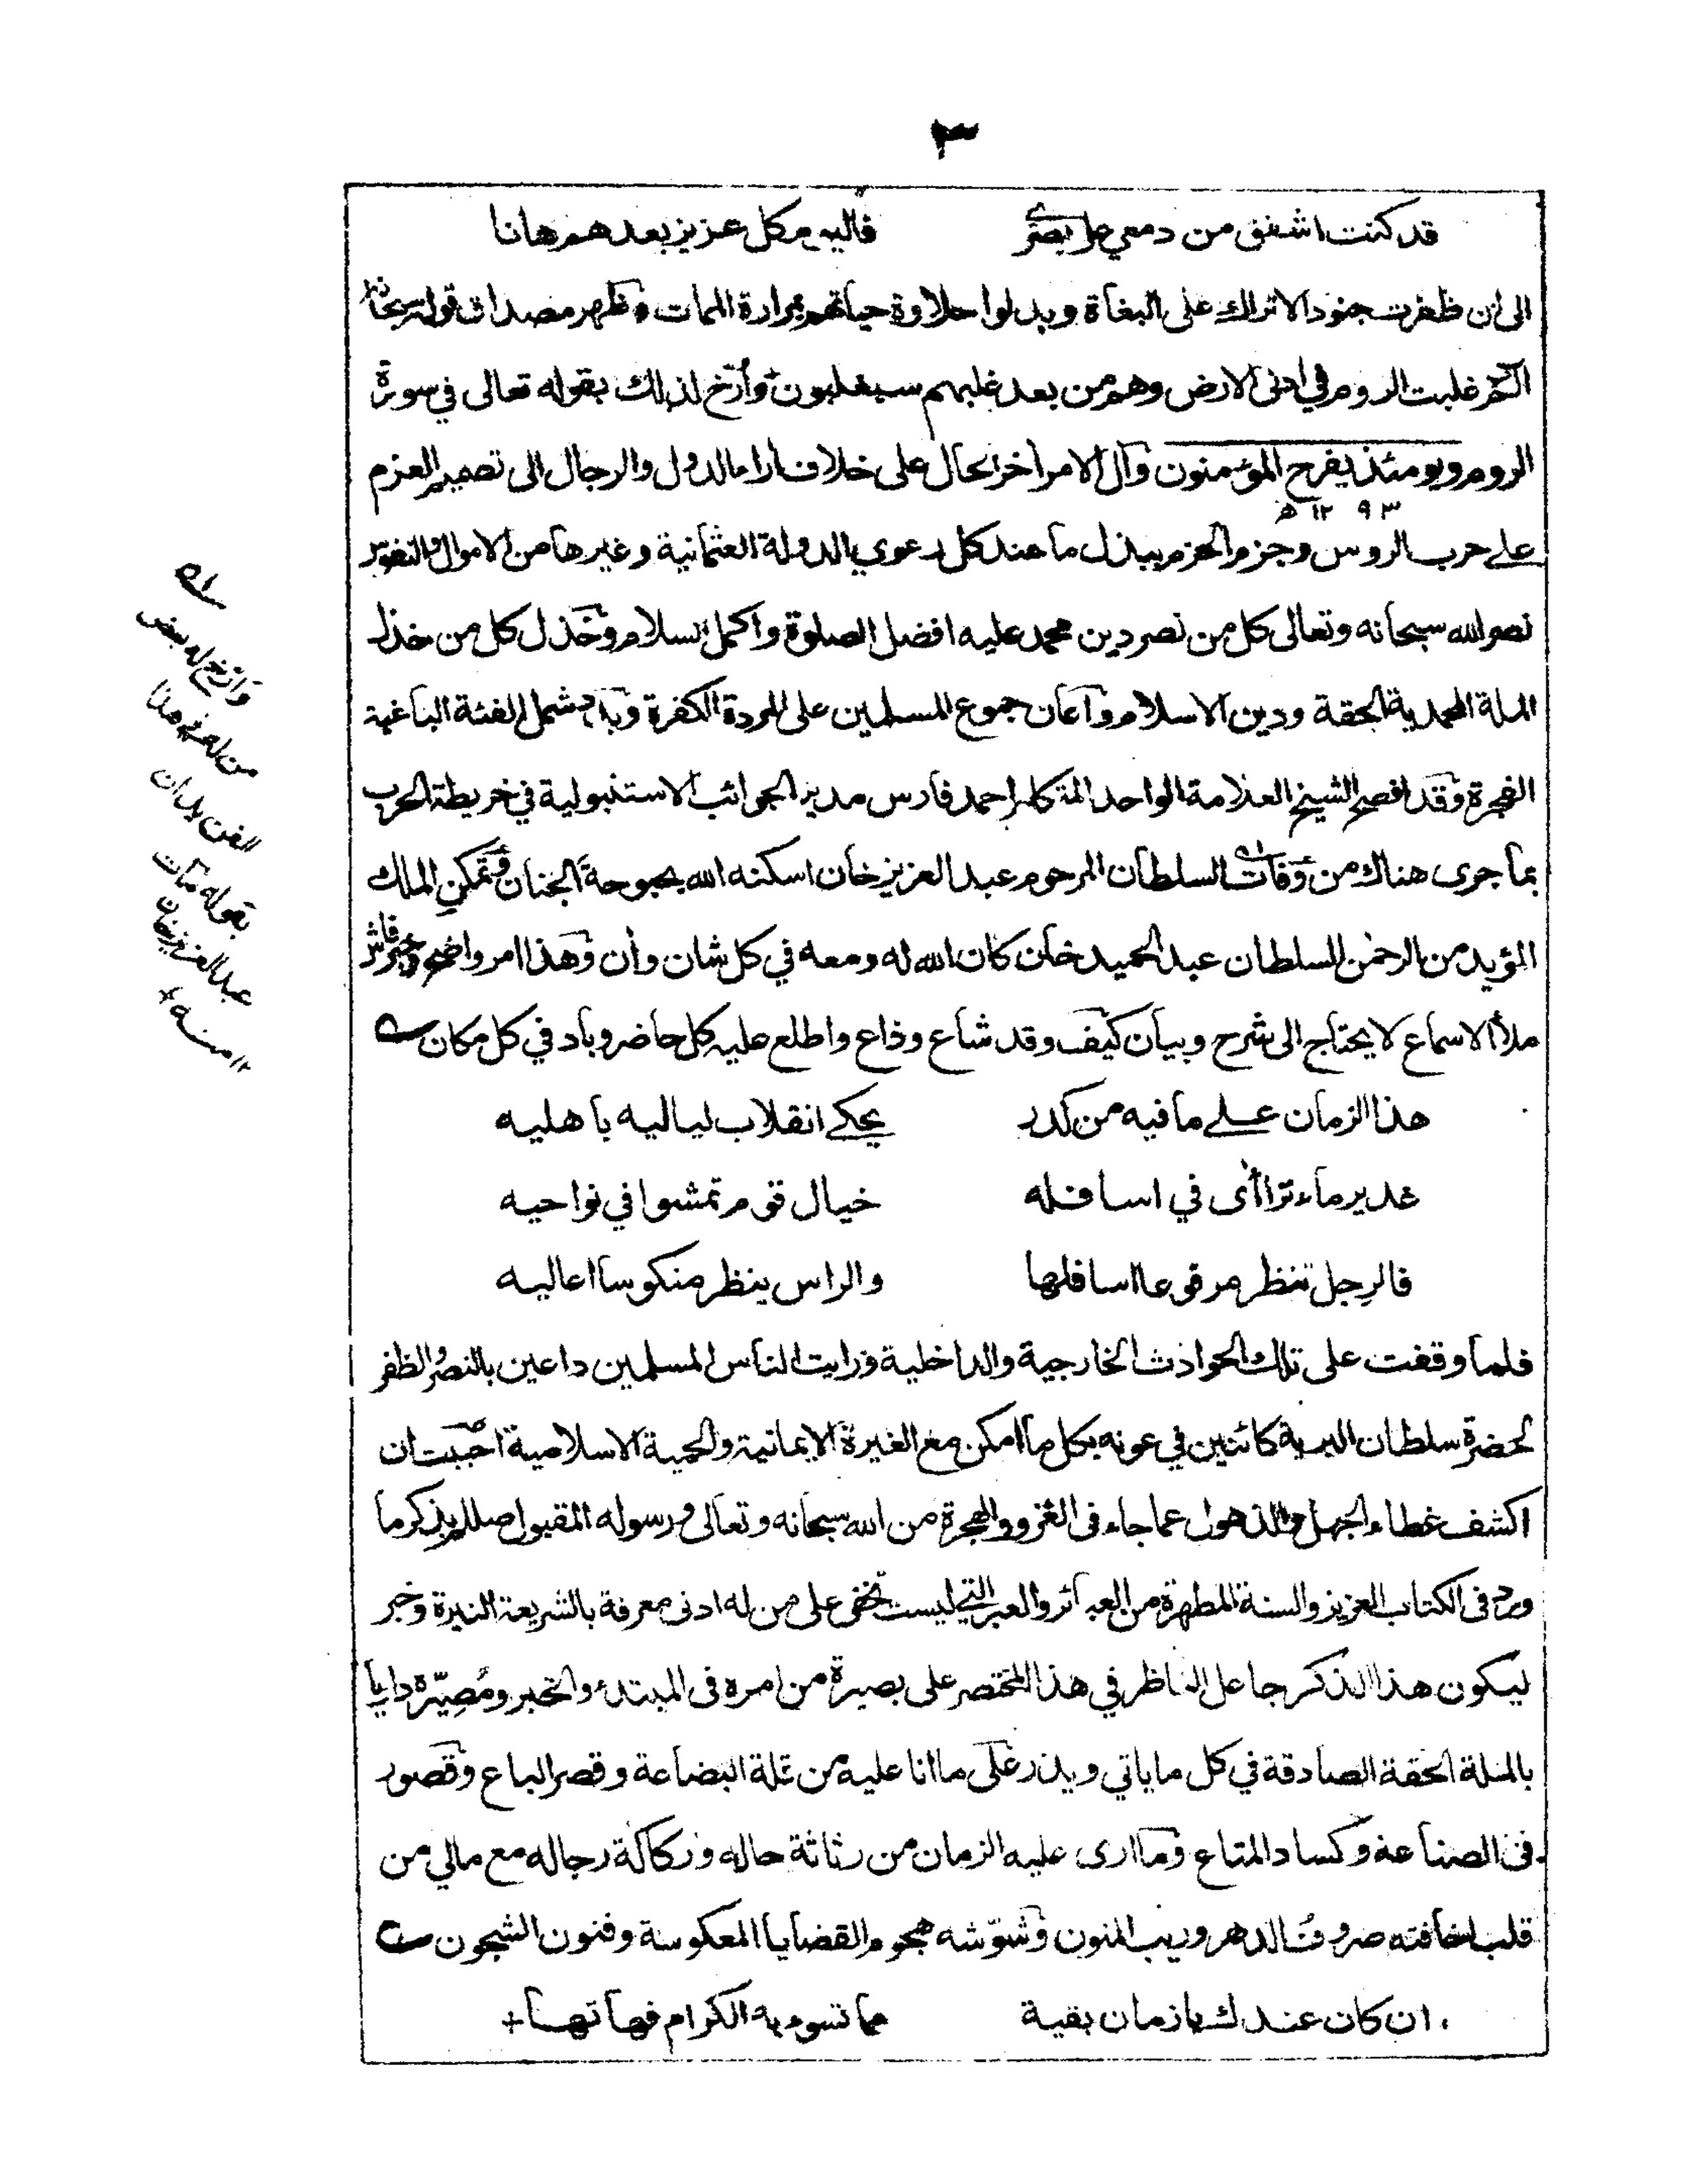 ٣
قد كنت اشفق من دمعي على بصري فاليوم كل عزيز بعدهم هانا
الى ان ظفرت جنود الاتراك على البغاة وبدلوا حلاوة حياتهم بمرارة الممات وظهر مصداق قوله سبحانه
الم غلبت الروم في ادنى الارض وهم من بعد غلبهم سيغلبون وأرّخ لذلك بقوله تعالى في سورة
الروم ويومئذ يفرح المؤمنون وآل الامر اخر الحال على خلاف اراء الدول والرجال الى تصميم العزم
١٢٩٣ ھ
على حرب الروس وجزم الحزم ببذل ما عند كل رعوي الدولة العثمانية وغيرها من الاموال والنفوس
نصر الله سبحانه وتعالى كل من نصر دين محمد عليه افضل الصلوة واكمل السلام وخذل كل من خذل
الملة المحمدية الحقة ودين الاسلام وآعان جموع المسلمين على المردة الكفرة وبدد شمل الفئة الباغية
الفجرة وقد افصح الشيخ العلامة الواحد المتكلم احمد فارس مدير الجوائب الاستنبولية في خريطة الحرب
بما جرى هناك من وفات السلطان المرحوم عبد العزيز خان اسكنه الله بحبوحة الجنان وتمكن الملك
المؤيد من الرحمن السلطان عبد الحميد خان كان الله له ومعه في كل شان وأن وهذا امر واضح وخبر فاش
ملأ الاسماع لا يحتاج الى شرح وبيان كيف وقد شاع وذاع واطلع عليه كل حاضر وباد في كل مكان
هذا الزمان على ما فيه من كدر يحكي انقلاب لياليه باهليه
غدير ماء تراأى في اسافله خيال قوم تمشوا في نواحيه
فالرجل تنظر مرفوعا اسافلها والراس ينظر منكوسا اعاليه
فلما وقفت على تلك الحوادث الخارجية والداخلية ورايت الناس المسلمين داعين بالنصر والظفر
لحضرة سلطان البرية كائنين في عونه بكل ما امكن مع الغيرة الايمانية والحمية الاسلامية احببت ان
اكشف غطاء الجهل والذهول عما جاء في الغزو والهجرة من الله سبحانه وتعالى ورسوله المقبول صللم بذكر ما
ورد في الكتاب العزيز والسنة المطهرة من العبائر والعبر التي ليست تخفى على من له ادنى معرفة بالشريعة النيرة وخبر
ليكون هذا الذكر جاعل الناظر في هذا المختصر على بصيرة من امره في المبتدء والخبر ومُصيّره دايبا
بالملة الحقة الصادقة في كل ما ياتي ويذر على ما انا عليه من قلة البضاعة وقصر الباع وقصور
في الصناعة وكساد المتاع وما ارى عليه الزمان من رثاثة حاله وركاكة رجاله مع مالي من
قلب اخافته صروف الدهر وريب المنون وشوّشه هجوم القضايا المعكوسة وفنون الشجون
ان كان عندك يا زمان بقية مما تسوء به الكرام فهاتها
وارّخ له بعض
من له في هذا
الفن يدان
بقوله مات
عبد العزيز خان
١٢ منه